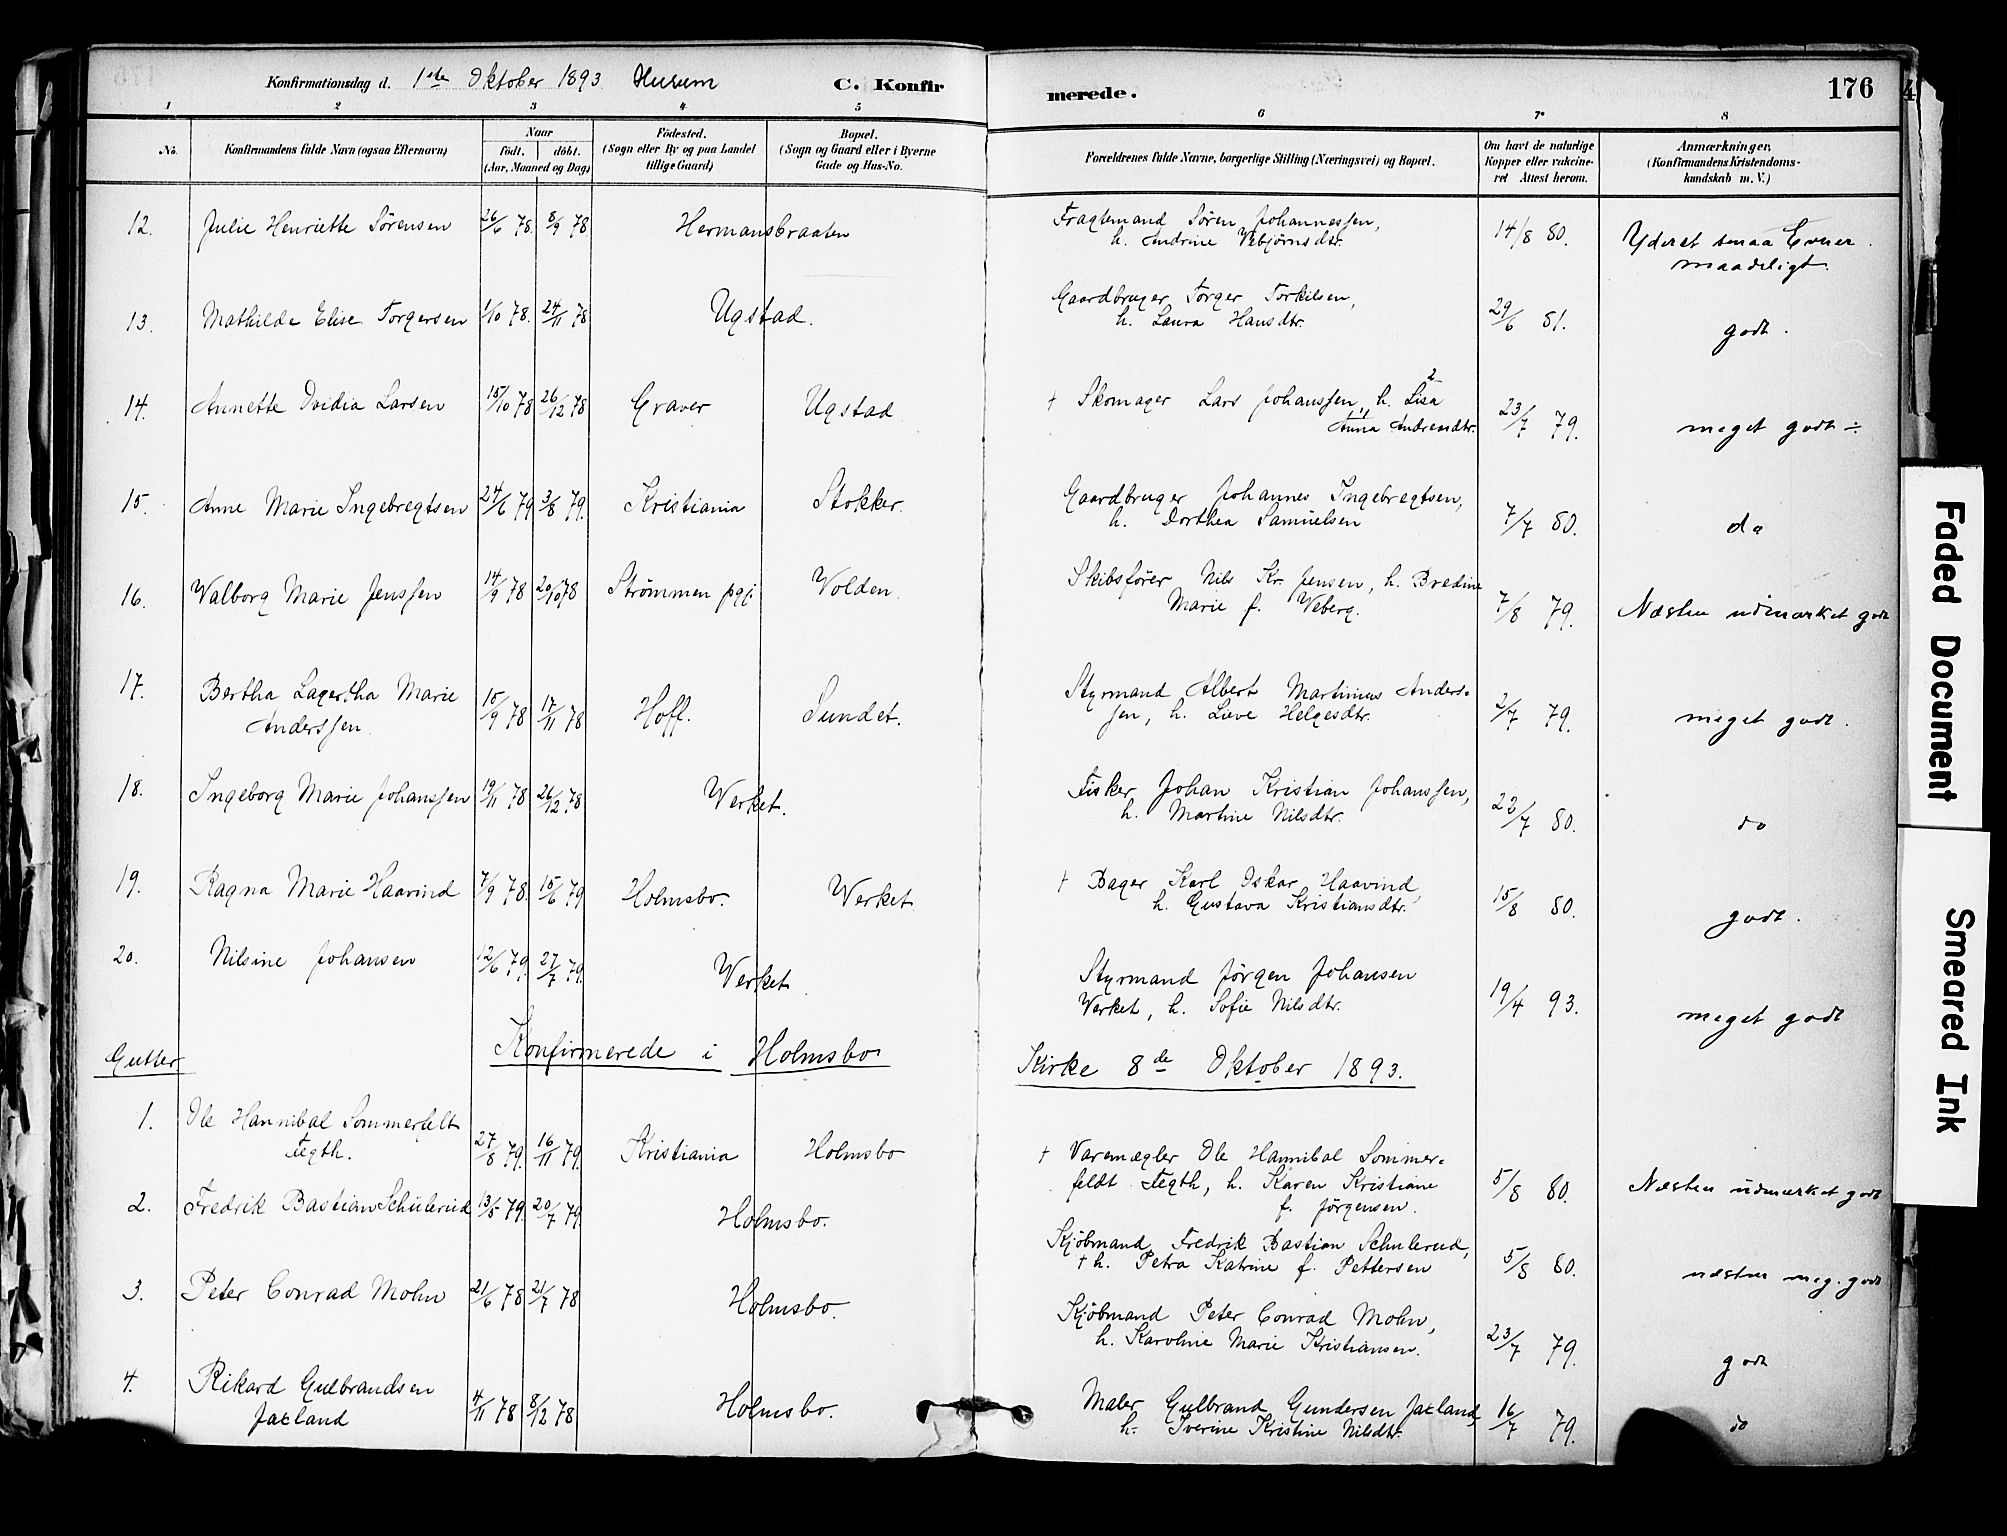 Konfirmationsdag d. 1ste Oktober 1893 Hurum C. Konfirmerede. 176
1 2 3 4 5 6 7 8
No. Konfirmandens fulde Navn (ogsaa Efternavn) Naar Födt. döbt. (Aar, Maaned og Dag) Födested. (Sogn eller By og paa Landet tillige Gaard) Bopæl. (Sogn og Gaard eller i Byerne Gade og Hus-No. Forældrenes fulde Navne, borgerlige Stilling (Næringsvei) og Bopæl. Om havt de naturlige Kopper eller vakcineret Attest herom. Anmærkninger. (Konfirmandens Kristendomskundskab m. V.)
12. Julie Henriette Sørensen 26/6 78. 8/9 78 Hermansbraaten Fragtemand Søren Johannessen, 14/8 80. Yderst smaa Evner.
h. Andrine Vebjørnsdtr. maadeligt.
13. Mathilde Elise Torgersen 1/10 78. 24/11 78 Ugstad. Gaardbruger Torger Torkilsen, 29/6 81. godt.
h. Laura Hansdtr.
14. Annette Ovidia Larsen 15/10 78 26/12 78 Graver Ugstad † Skomager Lars Johanssen, h. Lisa 23/7 79. meget godt ÷
Anna Andreasdtr.
15. Anne Marie Ingebregtsen 24/6 79 3/8 79. Kristiania Stokker. Gaardbruger Johannes Ingebregtsen, 7/7 80. do
h. Dorthea Samuelsen
16. Valborg Marie Jenssen 14/9 78 20/10 78 Strømmen pgj. Volden. Skibsfører Nils Kr. Jensen, h. Bredine 7/8 79. Næsten udmærket godt
Marie f. Weberg.
17. Bertha Lagertha Marie 15/9 78 17/11 78 Hoff. Sundet. Styrmand Albert Martinius Anders- 2/7 79. meget godt.
Anderssen. sen, h. Lieve Helgesdtr.
18. Ingeborg Marie Johanssen 19/11 78 26/12 78 Verket. Fisker Johan Kristian Johanssen, 23/7 80. do
h. Martine Nilsdtr.
19. Ragna Marie Haavind 7/9 78. 15/6 79 Holmsbo. Verket † Bager Karl Oskar Haavind, 15/8 80. godt.
h. Gustava Kristiansdtr.
20. Nilsine Johansen 12/6 79. 27/7 79. Verket. Styrmand Jørgen Johansen 19/4 93. meget godt
Verket, h. Sofie Nilsdtr.
Gutter Konfirmerede i Holmsbo Kirke 8de Oktober 1893.
1. Ole Hannibal Sommerfelt 27/8 79. 16/11 79. Kristiania Holmsbo † Varemægler Ole Hannibal Sommer- 5/8 80. Næsten udmærket godt
Fegth. feldt Fegth, h. Karen Kristiane
f. Jørgensen.
2. Fredrik Bastian Schulerud 13/5 79. 20/7 79. Holmsbo. Kjøbmand Fredrik Bastian Schulerud, 5/8 80. næsten meg. godt
† h. Petra Katrine f. Pettersen
3. Peter Conrad Mohn 21/6 78 21/7 78 Holmsbo. Kjøbmand Peter Conrad Mohn, 23/7 79. godt
h. Karoline Marie Kristiansen.
4. Rikard Gulbrandsen 4/11 78 8/12 78 Holmsbo. Maler Gulbrand Gundersen Jatland, 16/7 79. do
Jatland h. Iverine Kristine Nilsdtr.
Faded Document
Smeared Ink